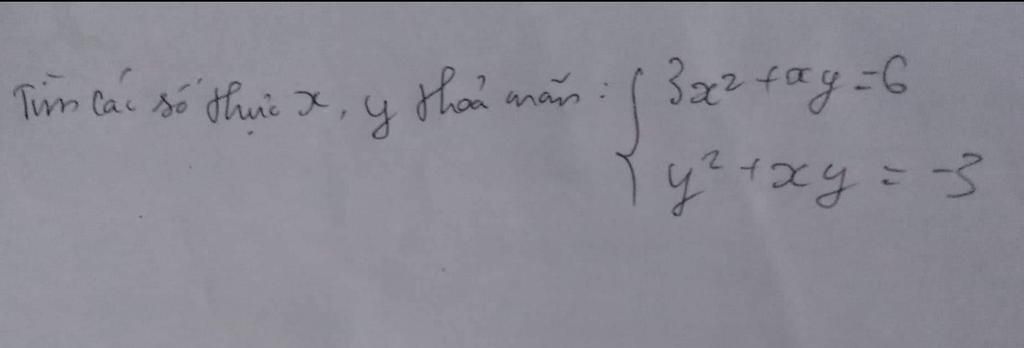 Tìm các số thực x, y thoả mãn: { 3x² + xy = 6
y² + xy = -3